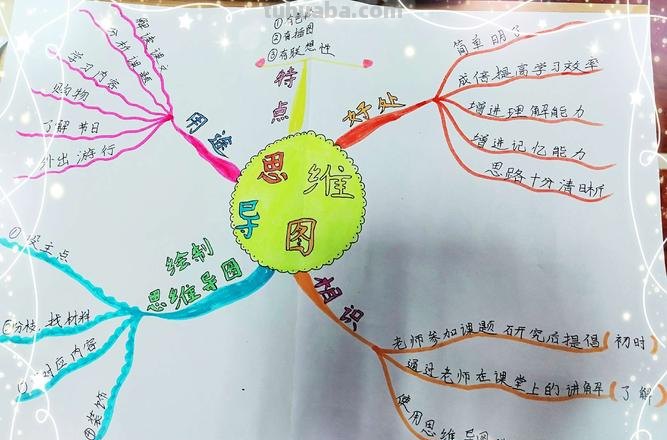 tubuaba.com
思维
导图
用途
解读课文
分析课题
学习内容
购物
了解节日
外出游行
特点
②有插图
③有联想性
好处
简单明了
成倍提高学习效率
增进理解能力
增进记忆能力
思路十分清晰
相识
老师参加课题研究后提倡(初时)
通过老师在课堂上的讲解(了解)
使用思维导图
绘制
思维导图
①设主点
分枝,找材料
对应内容
装饰